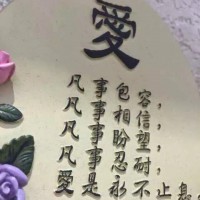 愛
凡事包容，
凡事相信，
凡事盼望，
凡事忍耐，
愛是永不止